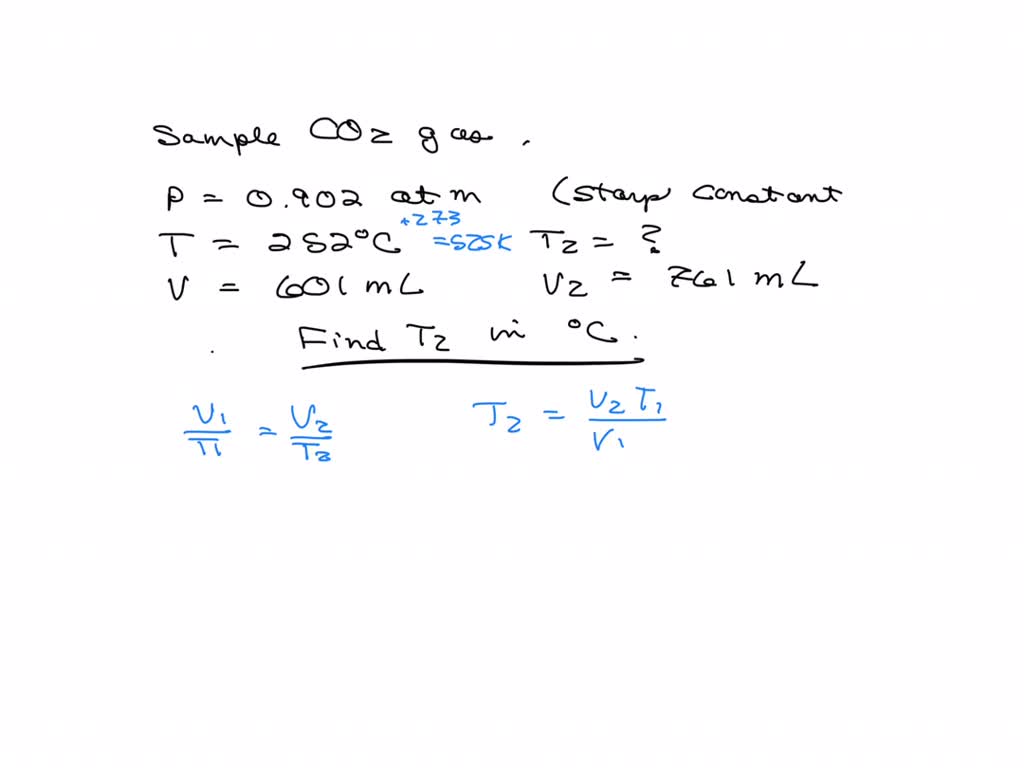 Sample CO2 gas.
P = 0.902 atm (stays constant
T = 252°C +273 =525K T2 = ?
V = 601 mL V2 = 761 mL
Find T2 in °C.
V1/T1 = V2/T2 T2 = V2 T1/V1